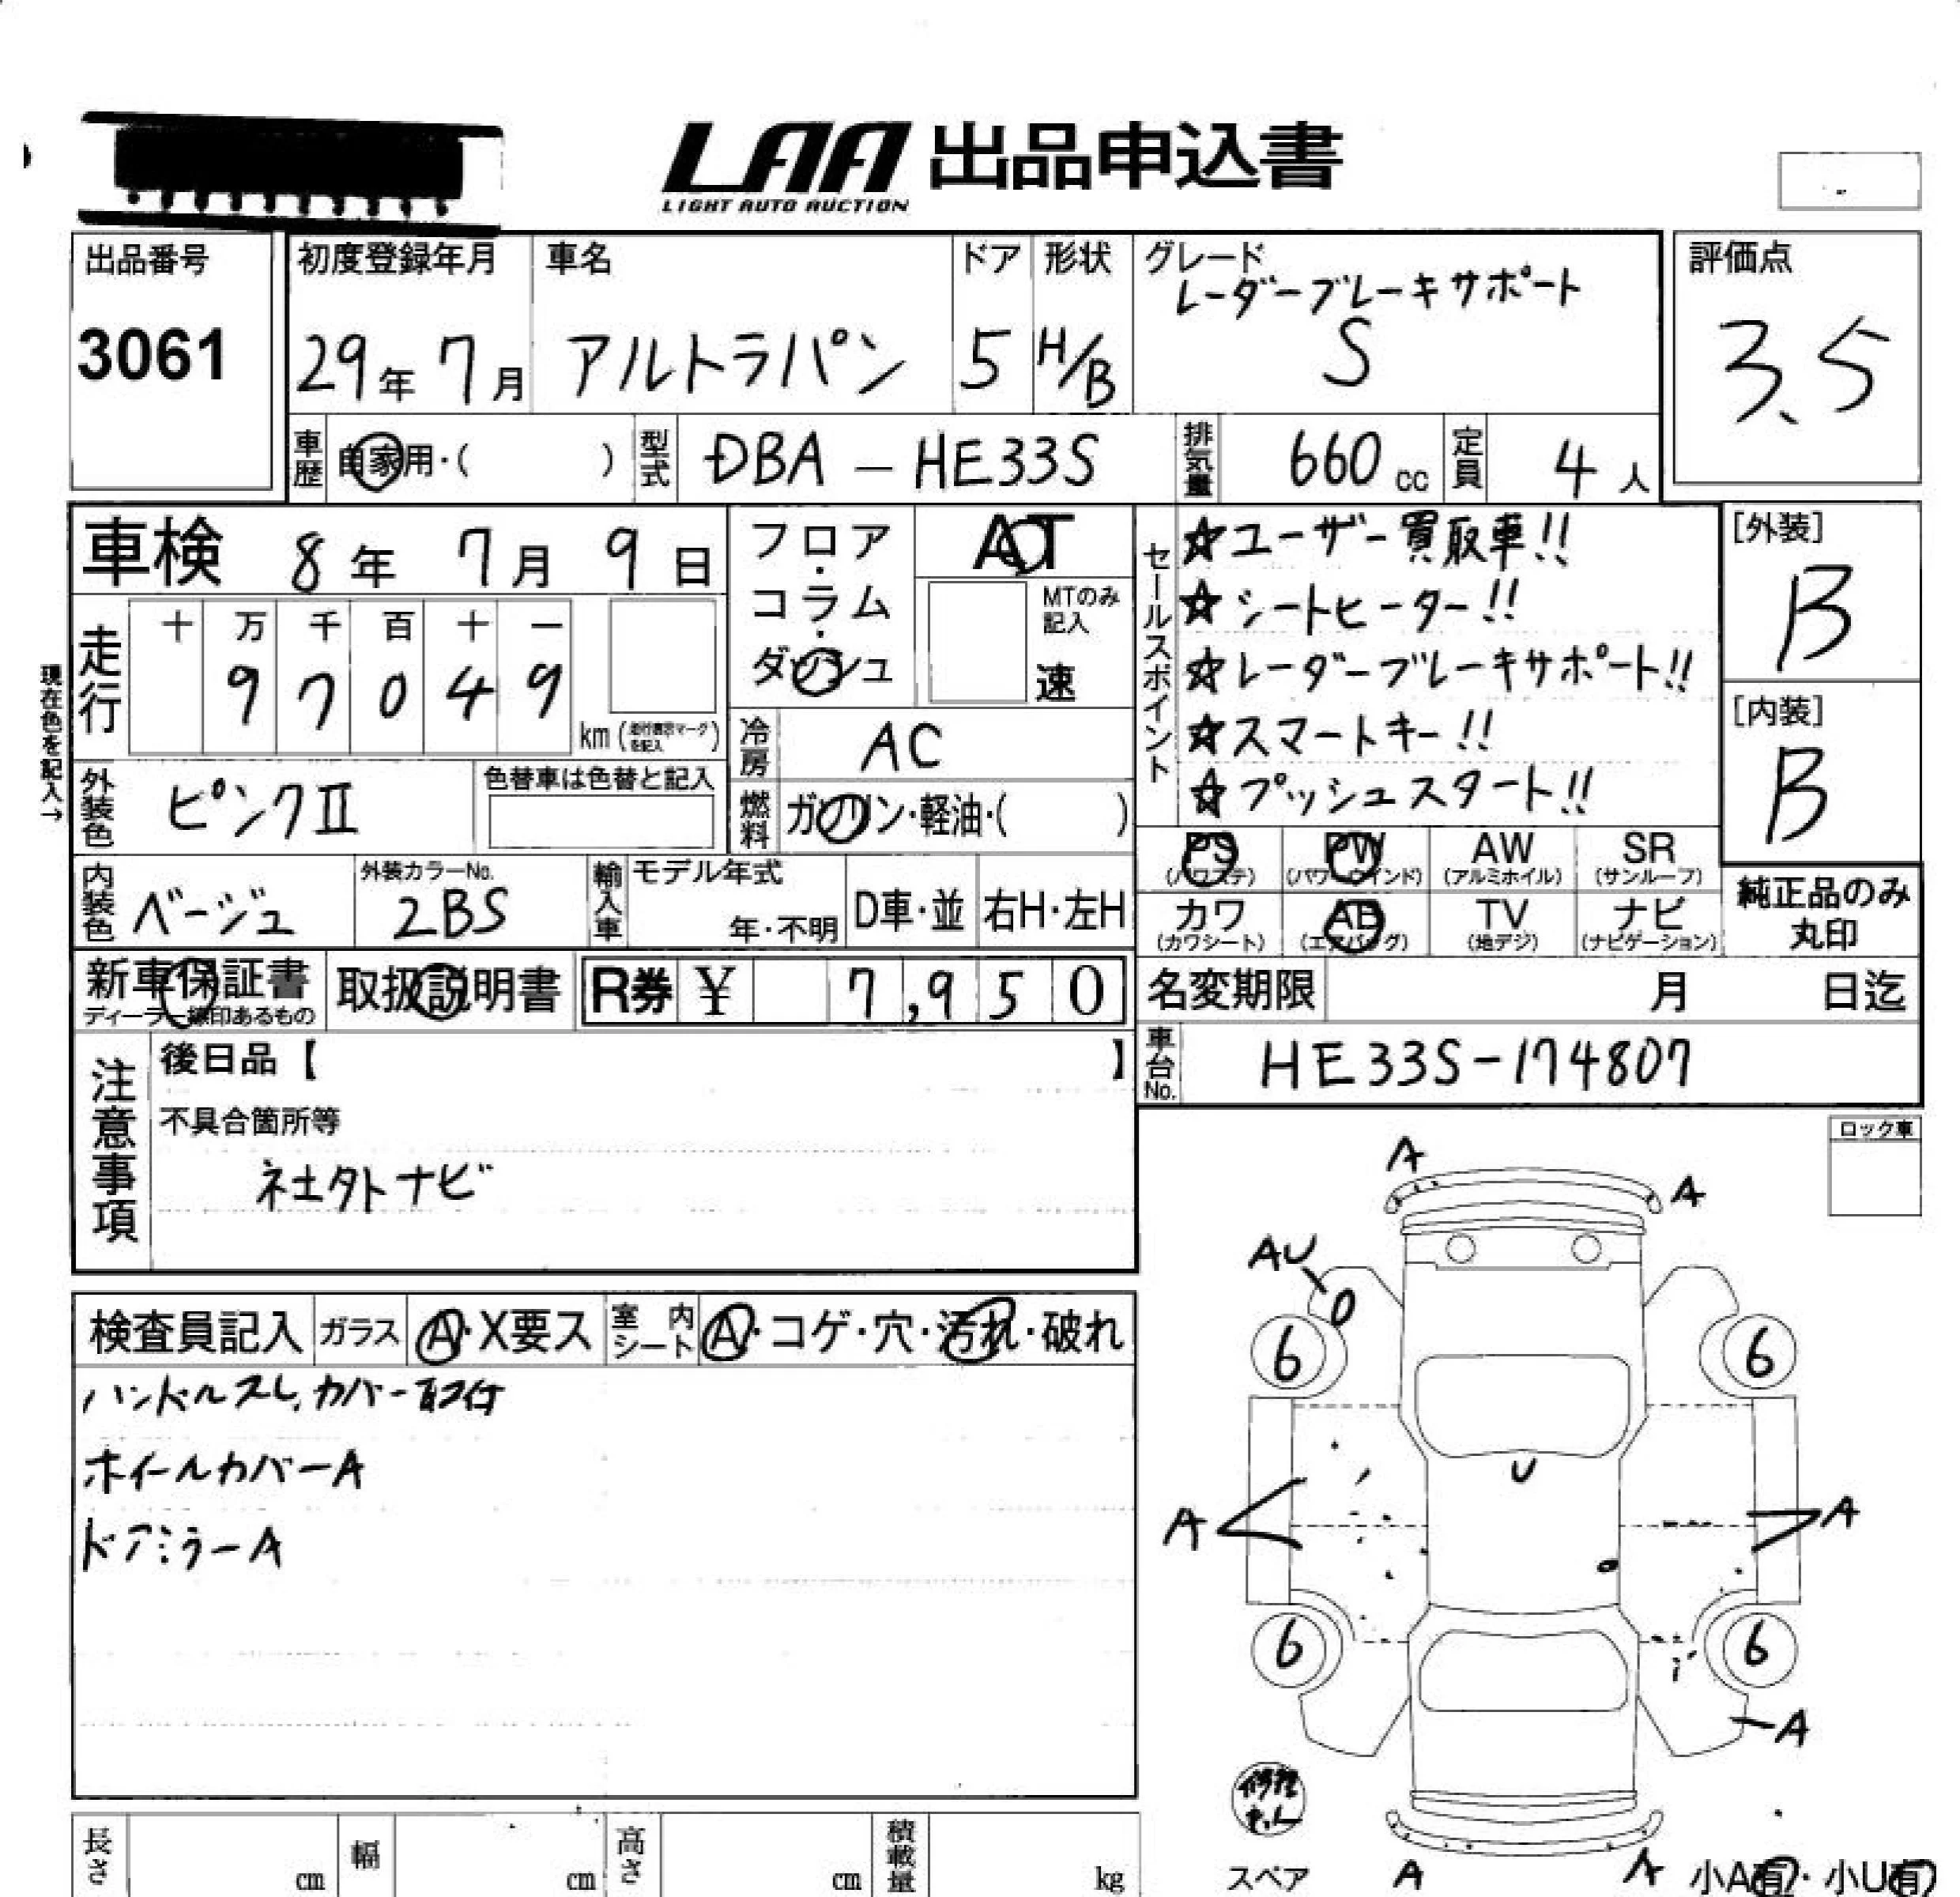 LAA 出品申込書
LIGHT AUTO AUCTION
出品番号
3061
初度登録年月
29年 7月
車名
アルトラパン
ドア
5
形状
H/B
グレード
レーダーブレーキサポート
S
評価点
3.5
車歴
自家用・( )
型式
DBA - HE33S
排気量
660 cc
定員
4 人
車検 8年 7月 9日
走行
十 万 千 百 十 一
9 7 0 4 9
km (走行表示マークを記入)
現在色を記入→
外装色
ピンクⅡ
色替車は色替と記入
フロア・コラム・ダッシュ
AT
MTのみ記入
速
冷房
AC
燃料
ガソリン・軽油・( )
セールスポイント
☆ユーザー買取車!!
☆シートヒーター!!
☆レーダーブレーキサポート!!
☆スマートキー!!
☆プッシュスタート!!
[外装]
B
[内装]
B
PS (パワステ) PW (パワーウインド) AW (アルミホイル) SR (サンルーフ)
カワ (カワシート) AB (エアバッグ) TV (地デジ) ナビ (ナビゲーション)
純正品のみ丸印
内装色
ベージュ
外装カラーNo.
2BS
輸入車
モデル年式
年・不明
D車・並
右H・左H
新車保証書
ディーラー線印あるもの
取扱説明書
R券 ¥ 7,950
名変期限 月 日迄
車台No.
HE33S-174807
注意事項
後日品【 】
不具合箇所等
社外ナビ
ロック車
検査員記入
ガラス
A・X要ス
室内シート
A・コゲ・穴・汚れ・破れ
ハンドルスレ、カバー取付
ホイールカバーA
ドアミラーA
A
A
AU
6
6
U
A
A
6
6
A
スペア
A
A
小A有・小U有
長さ cm
幅 cm
高さ cm
積載量 kg